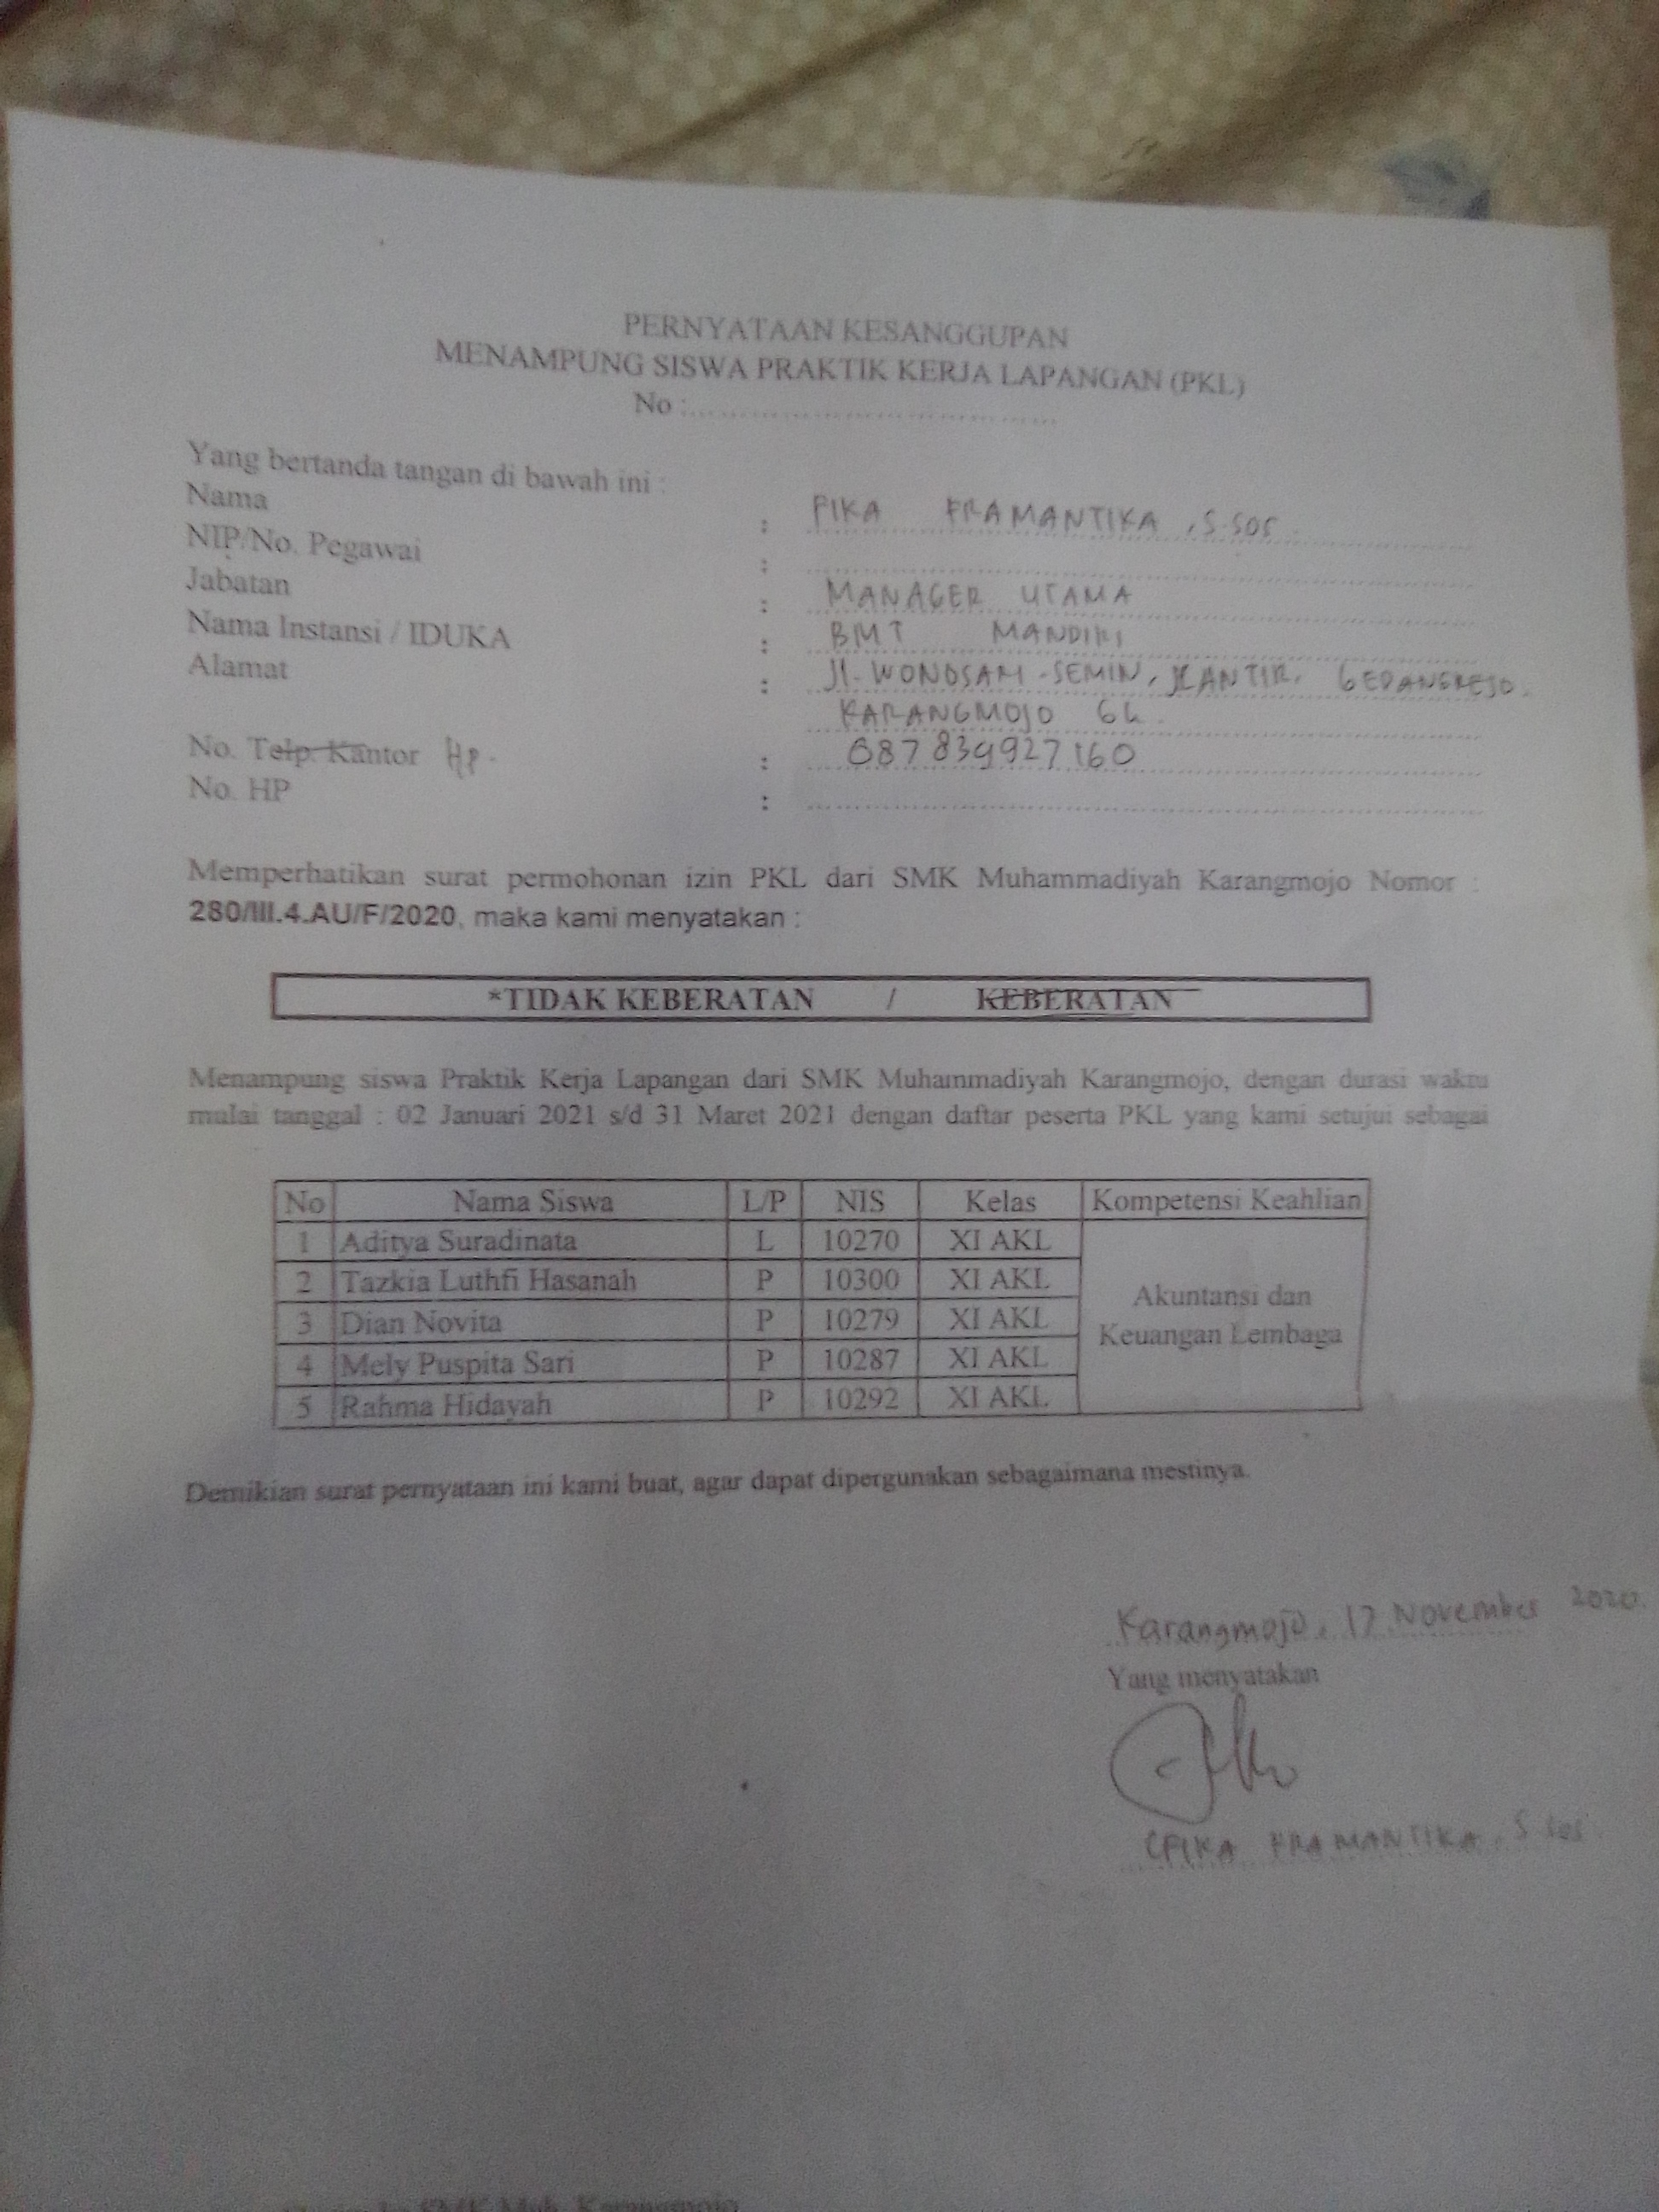 PERNYATAAN KESANGGUPAN
MENAMPUNG SISWA PRAKTIK KERJA LAPANGAN (PKL)
No :
Yang bertanda tangan di bawah ini :
Nama : FIKA FRAMANTIKA, S.Sos
NIP/No. Pegawai :
Jabatan : MANAGER UTAMA
Nama Instansi / IDUKA : BMT MANDIRI
Alamat : Jl. WONOSARI - SEMIN, GEDANGREJO.
KARANGMOJO GK.
No. Telp. Kantor Hp. : 087 839927160
No. HP :
Memperhatikan surat permohonan izin PKL dari SMK Muhammadiyah Karangmojo Nomor :
280/III.4.AU/F/2020, maka kami menyatakan :
*TIDAK KEBERATAN / KEBERATAN
Menampung siswa Praktik Kerja Lapangan dari SMK Muhammadiyah Karangmojo, dengan durasi waktu
mulai tanggal : 02 Januari 2021 s/d 31 Maret 2021 dengan daftar peserta PKL yang kami setujui sebagai
No Nama Siswa L/P NIS Kelas Kompetensi Keahlian
1 Aditya Suradinata L 10270 XI AKL
2 Tazkia Luthfi Hasanah P 10300 XI AKL
3 Dian Novita P 10279 XI AKL
4 Mely Puspita Sari P 10287 XI AKL
5 Rahma Hidayah P 10292 XI AKL
Akuntansi dan
Keuangan Lembaga
Demikian surat pernyataan ini kami buat, agar dapat dipergunakan sebagaimana mestinya.
Karangmojo, 17 November 2020.
Yang menyatakan
FIKA FRAMANTIKA, S.Sos
SMK Muh. Karangmojo